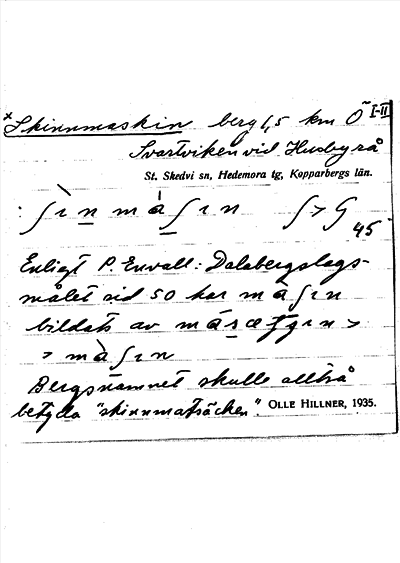 x Skinnmaskin berg 1,5 km O~ I-II
Svartviken vid Husbyrå
St. Skedvi sn, Hedemora tg, Kopparbergs län.
: ʃìn máʃın ʃ > 
45
Enligt P. Envall: Dalabergslags-
målet sid 50 har màʃın
bildats av
> màʃın
Bergsnamnet skulle alltså
betyda "skinnmatsäcken". OLLE HILLNER, 1935.